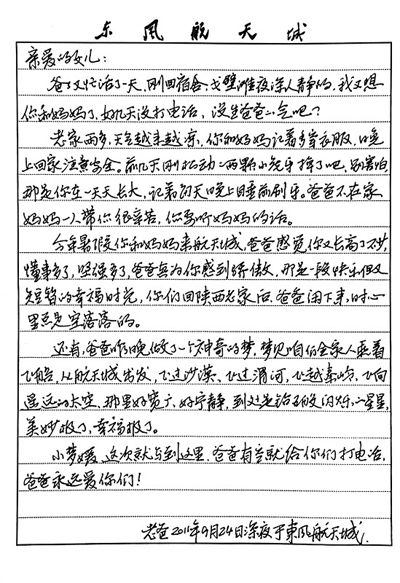 东风航天城
亲爱的女儿:
爸爸又忙活了一天,刚回宿舍,戈壁滩夜深人静的,我又想
你和妈妈了,好几天没打电话,没生爸爸的气吧?
老家雨多,天气越来越凉,你和妈妈记着多穿衣服,晚
上回家注意安全。前几天刚松动的两颗小虎牙掉了吧,别害怕
那是你在一天天长大,记着每天晚上睡前刷牙。爸爸不在家
妈妈一人带你很辛苦,你要听妈妈的话。
今年暑假你和妈妈来航天城,爸爸感觉你又长高了不少,
懂事多了,坚强多了,爸爸真为你感到骄傲,那是一段快乐但又
短暂的幸福时光,你们回陕西老家后,爸爸闲下来,时心
里总是空落落的。
还有,爸爸昨晚做了一个神奇的梦,梦见咱们全家人乘着
飞船,从航天城出发,飞过沙漠、飞过渭河、飞越秦岭,飞向
遥远的太空,那里好宽广,好宁静,到处是活泼的闪烁的小星星,
美妙极了,幸福极了。
小梦媛,这次就写到这里,爸爸有空就给你们打电话,
爸爸永远爱你们!
老爸2011年9月24日深夜于東风航天城